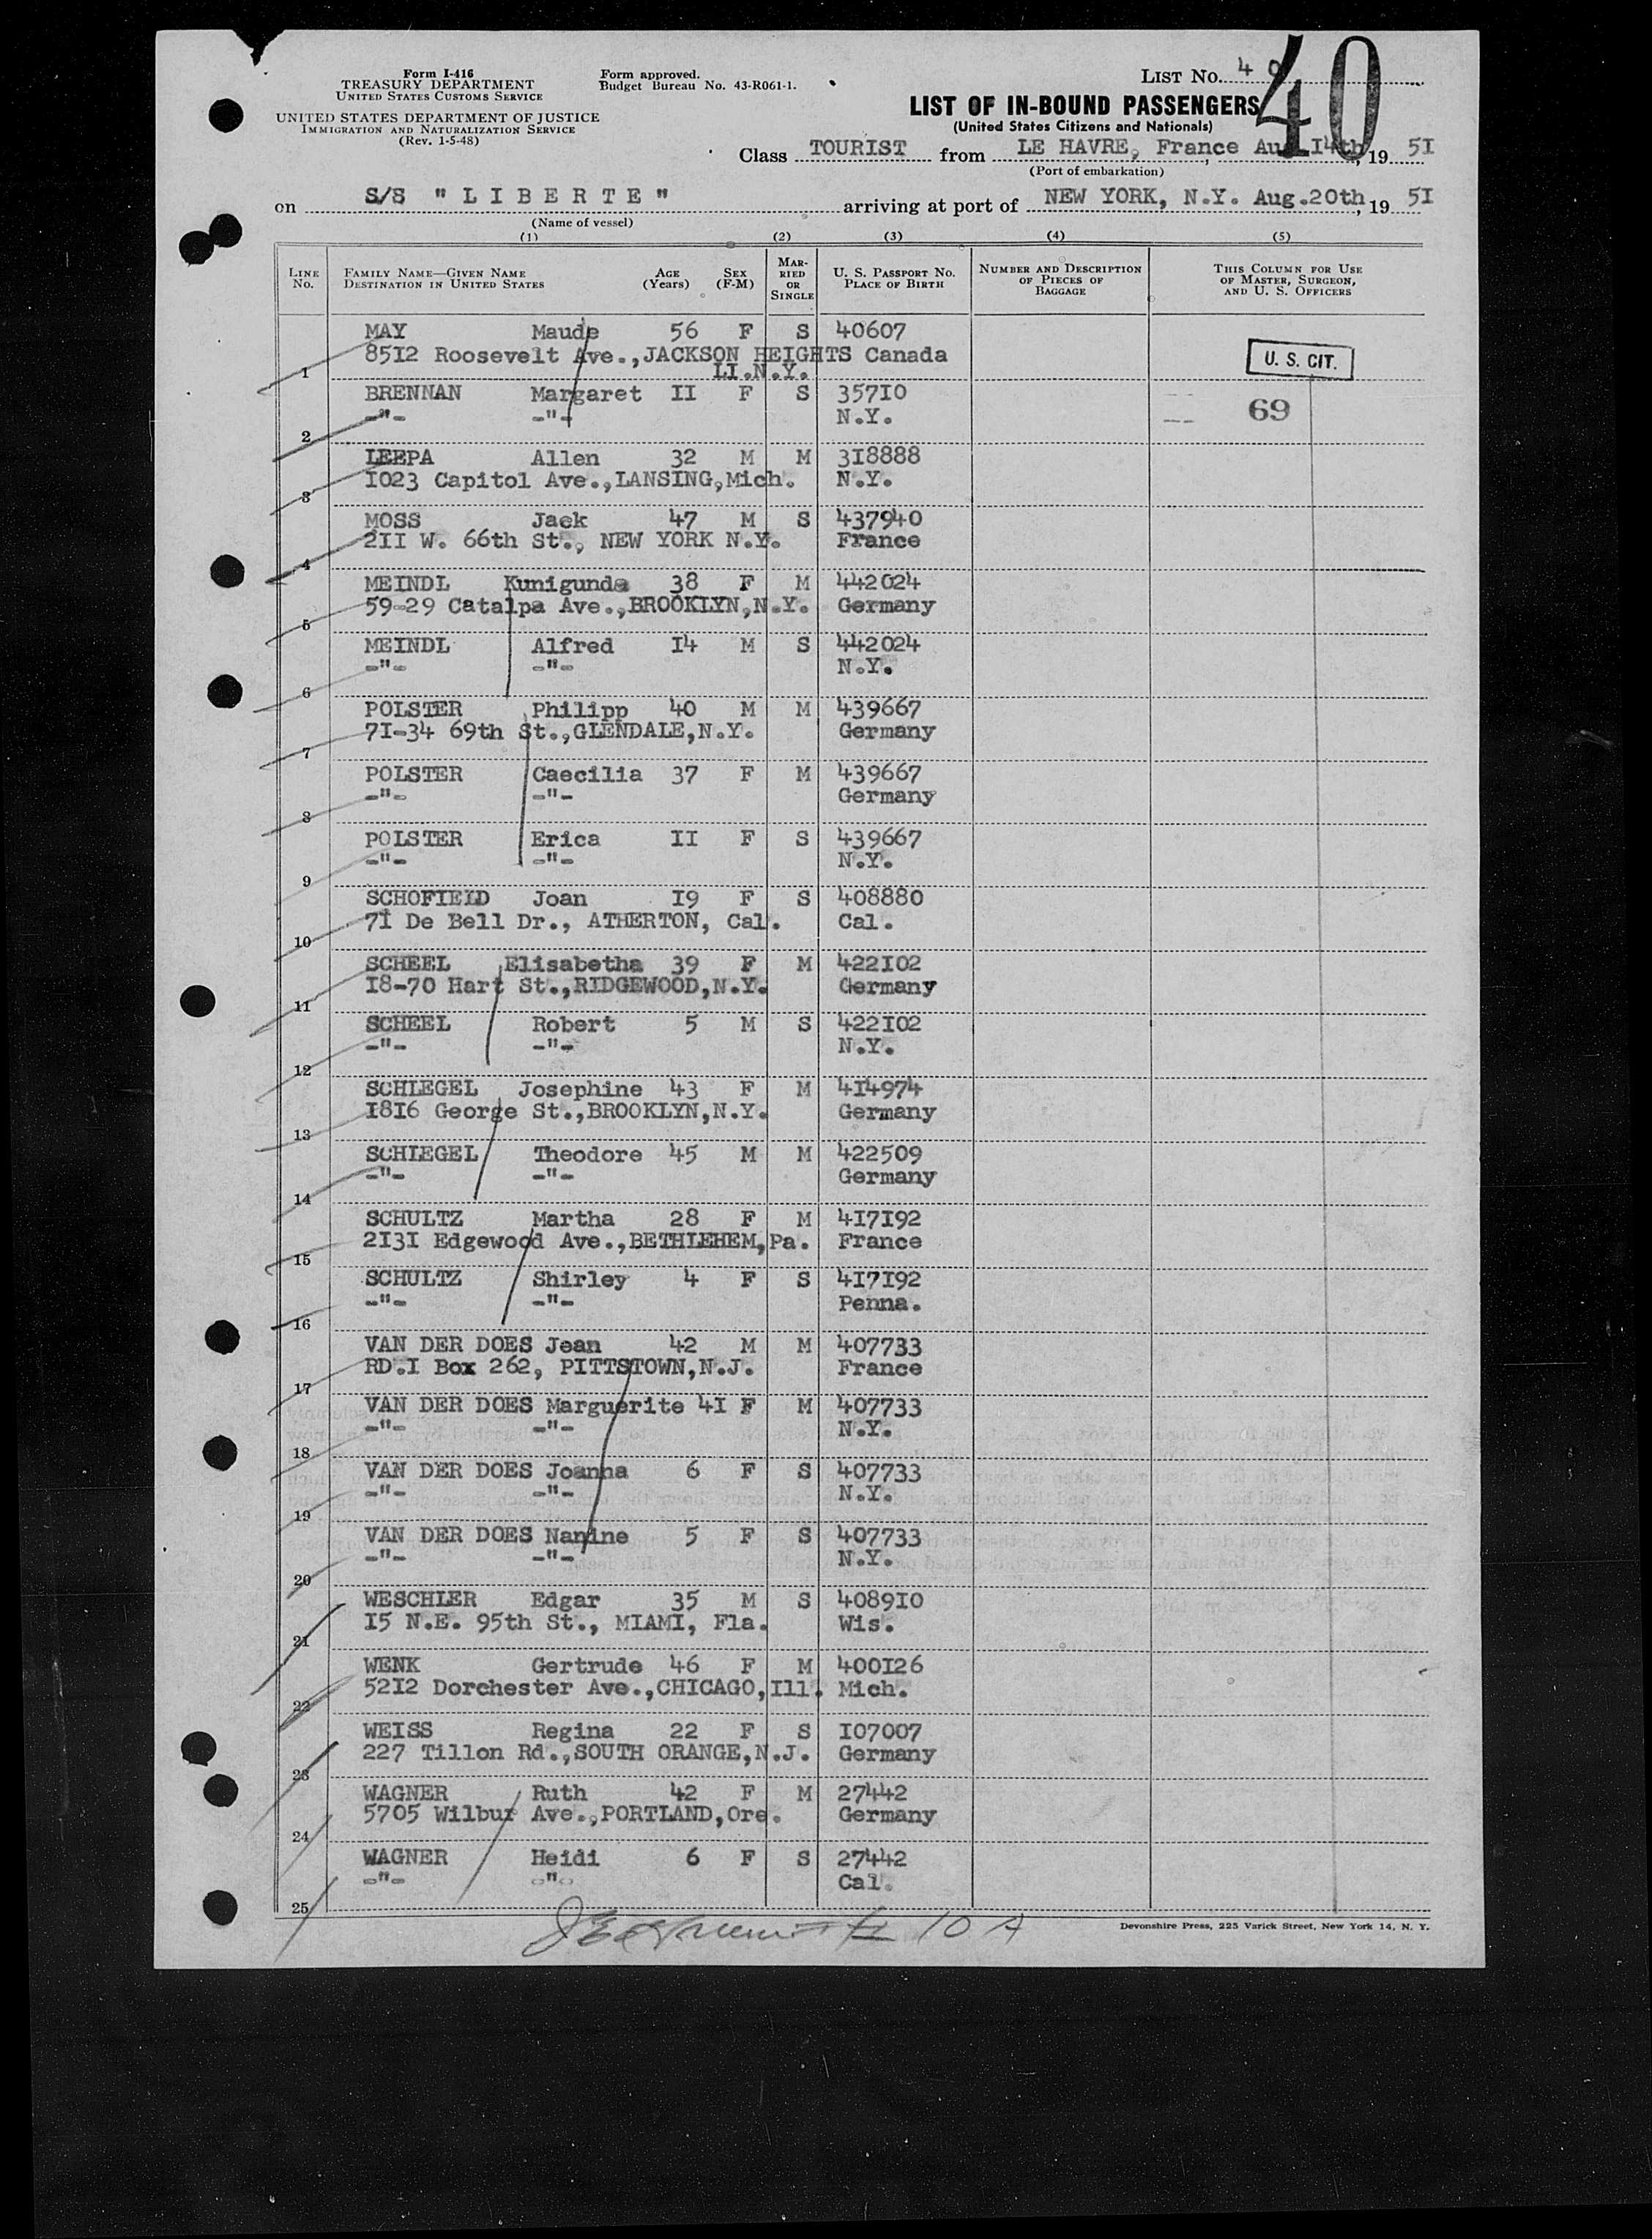 Form I-416
TREASURY DEPARTMENT
UNITED STATES CUSTOMS SERVICE
UNITED STATES DEPARTMENT OF JUSTICE
IMMIGRATION AND NATURALIZATION SERVICE
(Rev. 1-5-48)
Form approved.
Budget Bureau No. 43-R061-1.
LIST NO. 40
40
LIST OF IN-BOUND PASSENGERS
(United States Citizens and Nationals)
Class TOURIST from LE HAVRE, France Aug. I4th, 19 5I
(Port of embarkation)
on S/S "LIBERTE" arriving at port of NEW YORK, N.Y. Aug.20th, 19 5I
(Name of vessel)
(1) (2) (3) (4) (5)
LINE NO.
FAMILY NAME—GIVEN NAME
DESTINATION IN UNITED STATES
AGE (Years)
SEX (F-M)
MARRIED OR SINGLE
U. S. PASSPORT NO.
PLACE OF BIRTH
NUMBER AND DESCRIPTION OF PIECES OF BAGGAGE
THIS COLUMN FOR USE OF MASTER, SURGEON, AND U. S. OFFICERS
MAY Maude 56 F S 40607
8512 Roosevelt Ave.,JACKSON HEIGHTS Canada
1 LI.N.Y.
U. S. CIT.
BRENNAN Margaret II F S 357I0
-"- -"- N.Y.
69
2
LEEPA Allen 32 M M 3I8888
I023 Capitol Ave.,LANSING,Mich. N.Y.
3
MOSS Jack 47 M S 437940
2II W. 66th St., NEW YORK N.Y. France
4
MEINDL Kunigunda 38 F M 442024
59-29 Catalpa Ave.,BROOKLYN,N.Y. Germany
5
MEINDL Alfred I4 M S 442024
-"- -"- N.Y.
6
POLSTER Philipp 40 M M 439667
7I-34 69th St.,GLENDALE,N.Y. Germany
7
POLSTER Caecilia 37 F M 439667
-"- -"- Germany
8
POLSTER Erica II F S 439667
-"- -"- N.Y.
9
SCHOFIELD Joan I9 F S 408880
7I De Bell Dr., ATHERTON, Cal. Cal.
10
SCHEEL Elisabetha 39 F M 422I02
I8-70 Hart St.,RIDGEWOOD,N.Y. Germany
11
SCHEEL Robert 5 M S 422I02
-"- -"- N.Y.
12
SCHLEGEL Josephine 43 F M 4I4974
I8I6 George St.,BROOKLYN,N.Y. Germany
13
SCHLEGEL Theodore 45 M M 422509
-"- -"- Germany
14
SCHULTZ Martha 28 F M 4I7I92
2I3I Edgewood Ave.,BETHLEHEM,Pa. France
15
SCHULTZ Shirley 4 F S 4I7I92
-"- -"- Penna.
16
VAN DER DOES Jean 42 M M 407733
RD.I Box 262, PITTSTOWN,N.J. France
17
VAN DER DOES Marguerite 4I F M 407733
-"- -"- N.Y.
18
VAN DER DOES Joanna 6 F S 407733
-"- -"- N.Y.
19
VAN DER DOES Nanine 5 F S 407733
-"- -"- N.Y.
20
WESCHLER Edgar 35 M S 4089I0
I5 N.E. 95th St., MIAMI, Fla. Wis.
21
WENK Gertrude 46 F M 400I26
52I2 Dorchester Ave.,CHICAGO,Ill. Mich.
22
WEISS Regina 22 F S I07007
227 Tillon Rd.,SOUTH ORANGE,N.J. Germany
23
WAGNER Ruth 42 F M 27442
5705 Wilbur Ave.,PORTLAND,Ore. Germany
24
WAGNER Heidi 6 F S 27442
-"- -"- Cal.
25
10 A
Devonshire Press, 225 Varick Street, New York 14, N. Y.